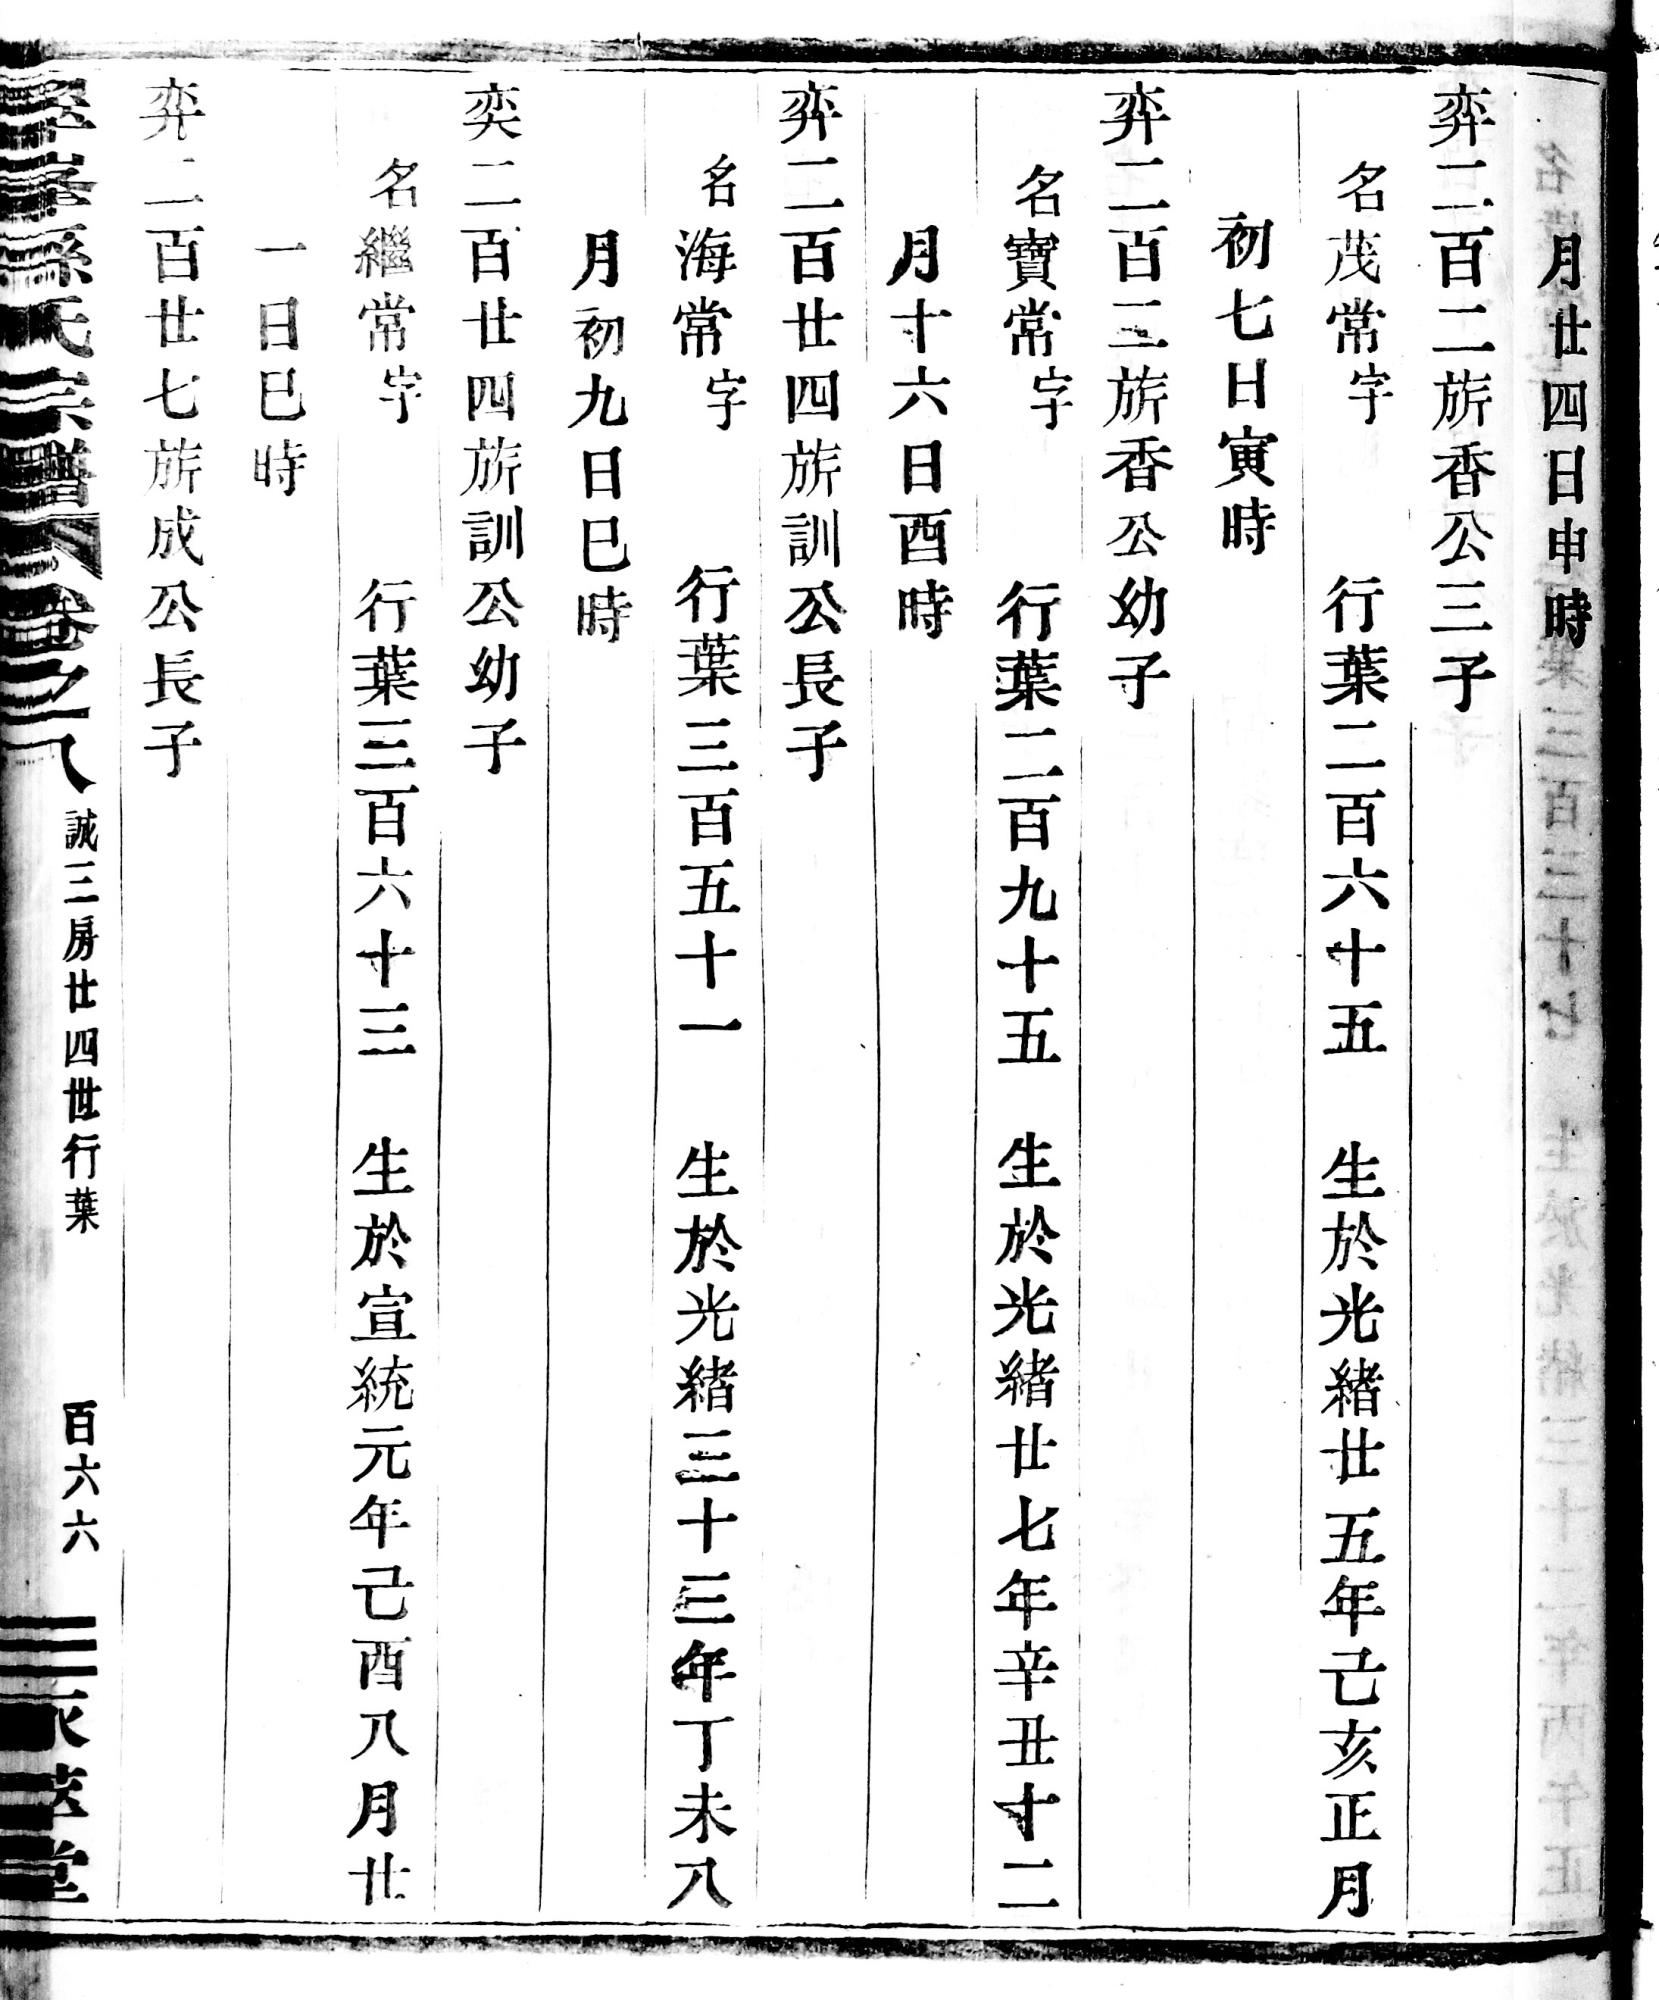 月廿四日申時
弈二百二旂香公三子
名茂常字 行葉二百六十五 生於光緒廿五年己亥正月
初七日寅時
弈二百二旂香公幼子
名寶常字 行葉二百九十五 生於光緒廿七年辛丑十二
月十六日酉時
弈二百廿四旂訓公長子
名海常字 行葉三百五十一 生於光緒三十三年丁未八
月初九日巳時
奕二百廿四旂訓公幼子
名繼常字 行葉三百六十三 生於宣統元年己酉八月廿
一日巳時
弈二百廿七旂成公長子
孫氏宗譜 卷之八 誠三房廿四世行葉 百六六 堂